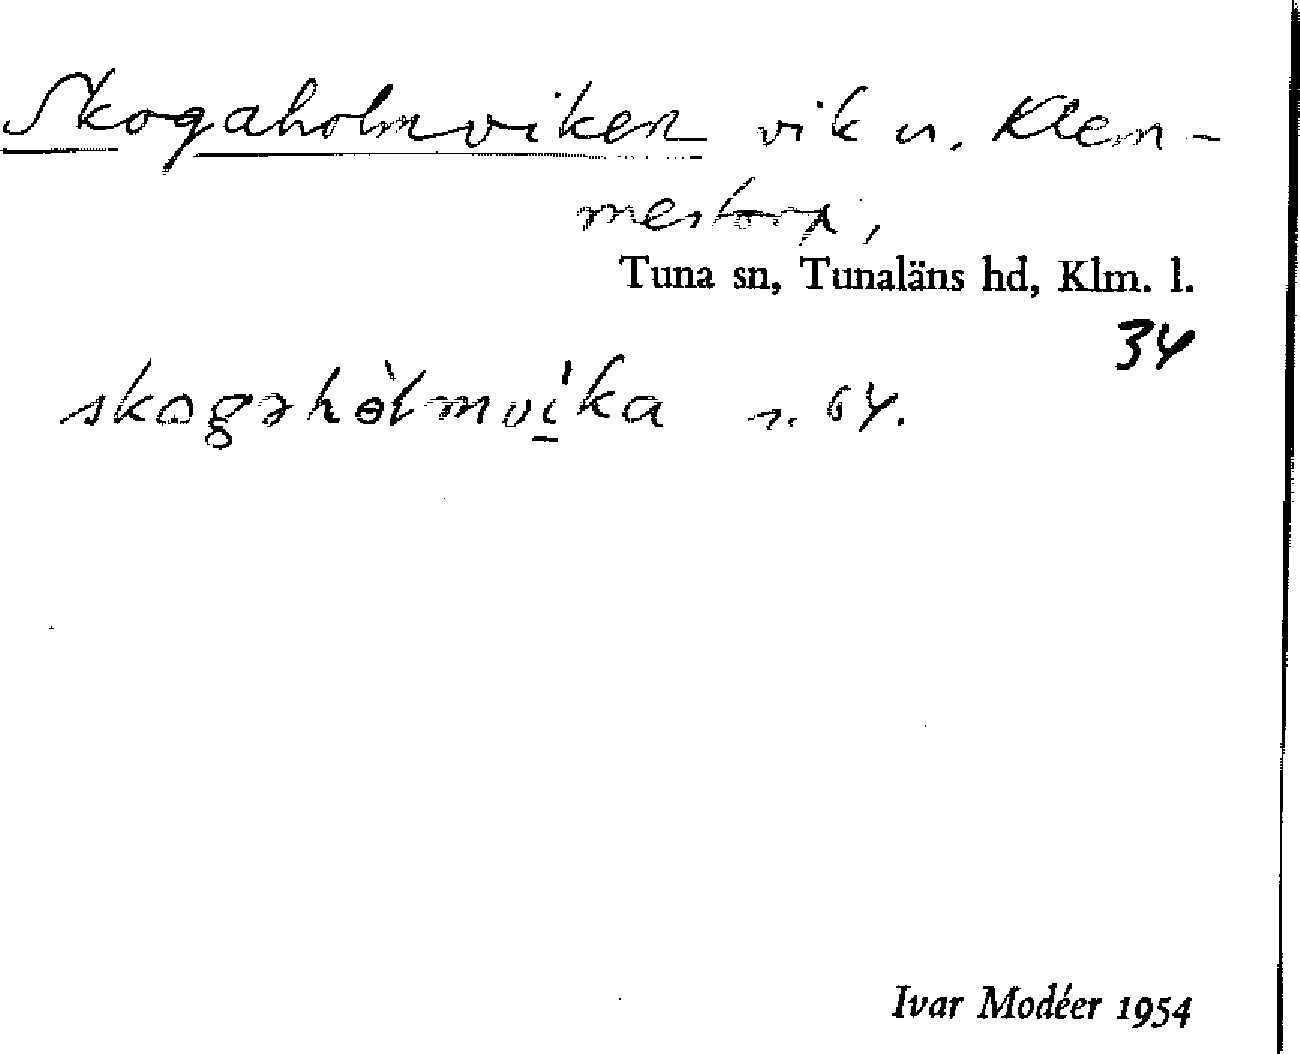 Skogaholmviken vik u. Klem-
mestorp,
Tuna sn, Tunaläns hd, Klm. l.
34
skogəhòlmvi̠ka s. 64.
Ivar Modéer 1954